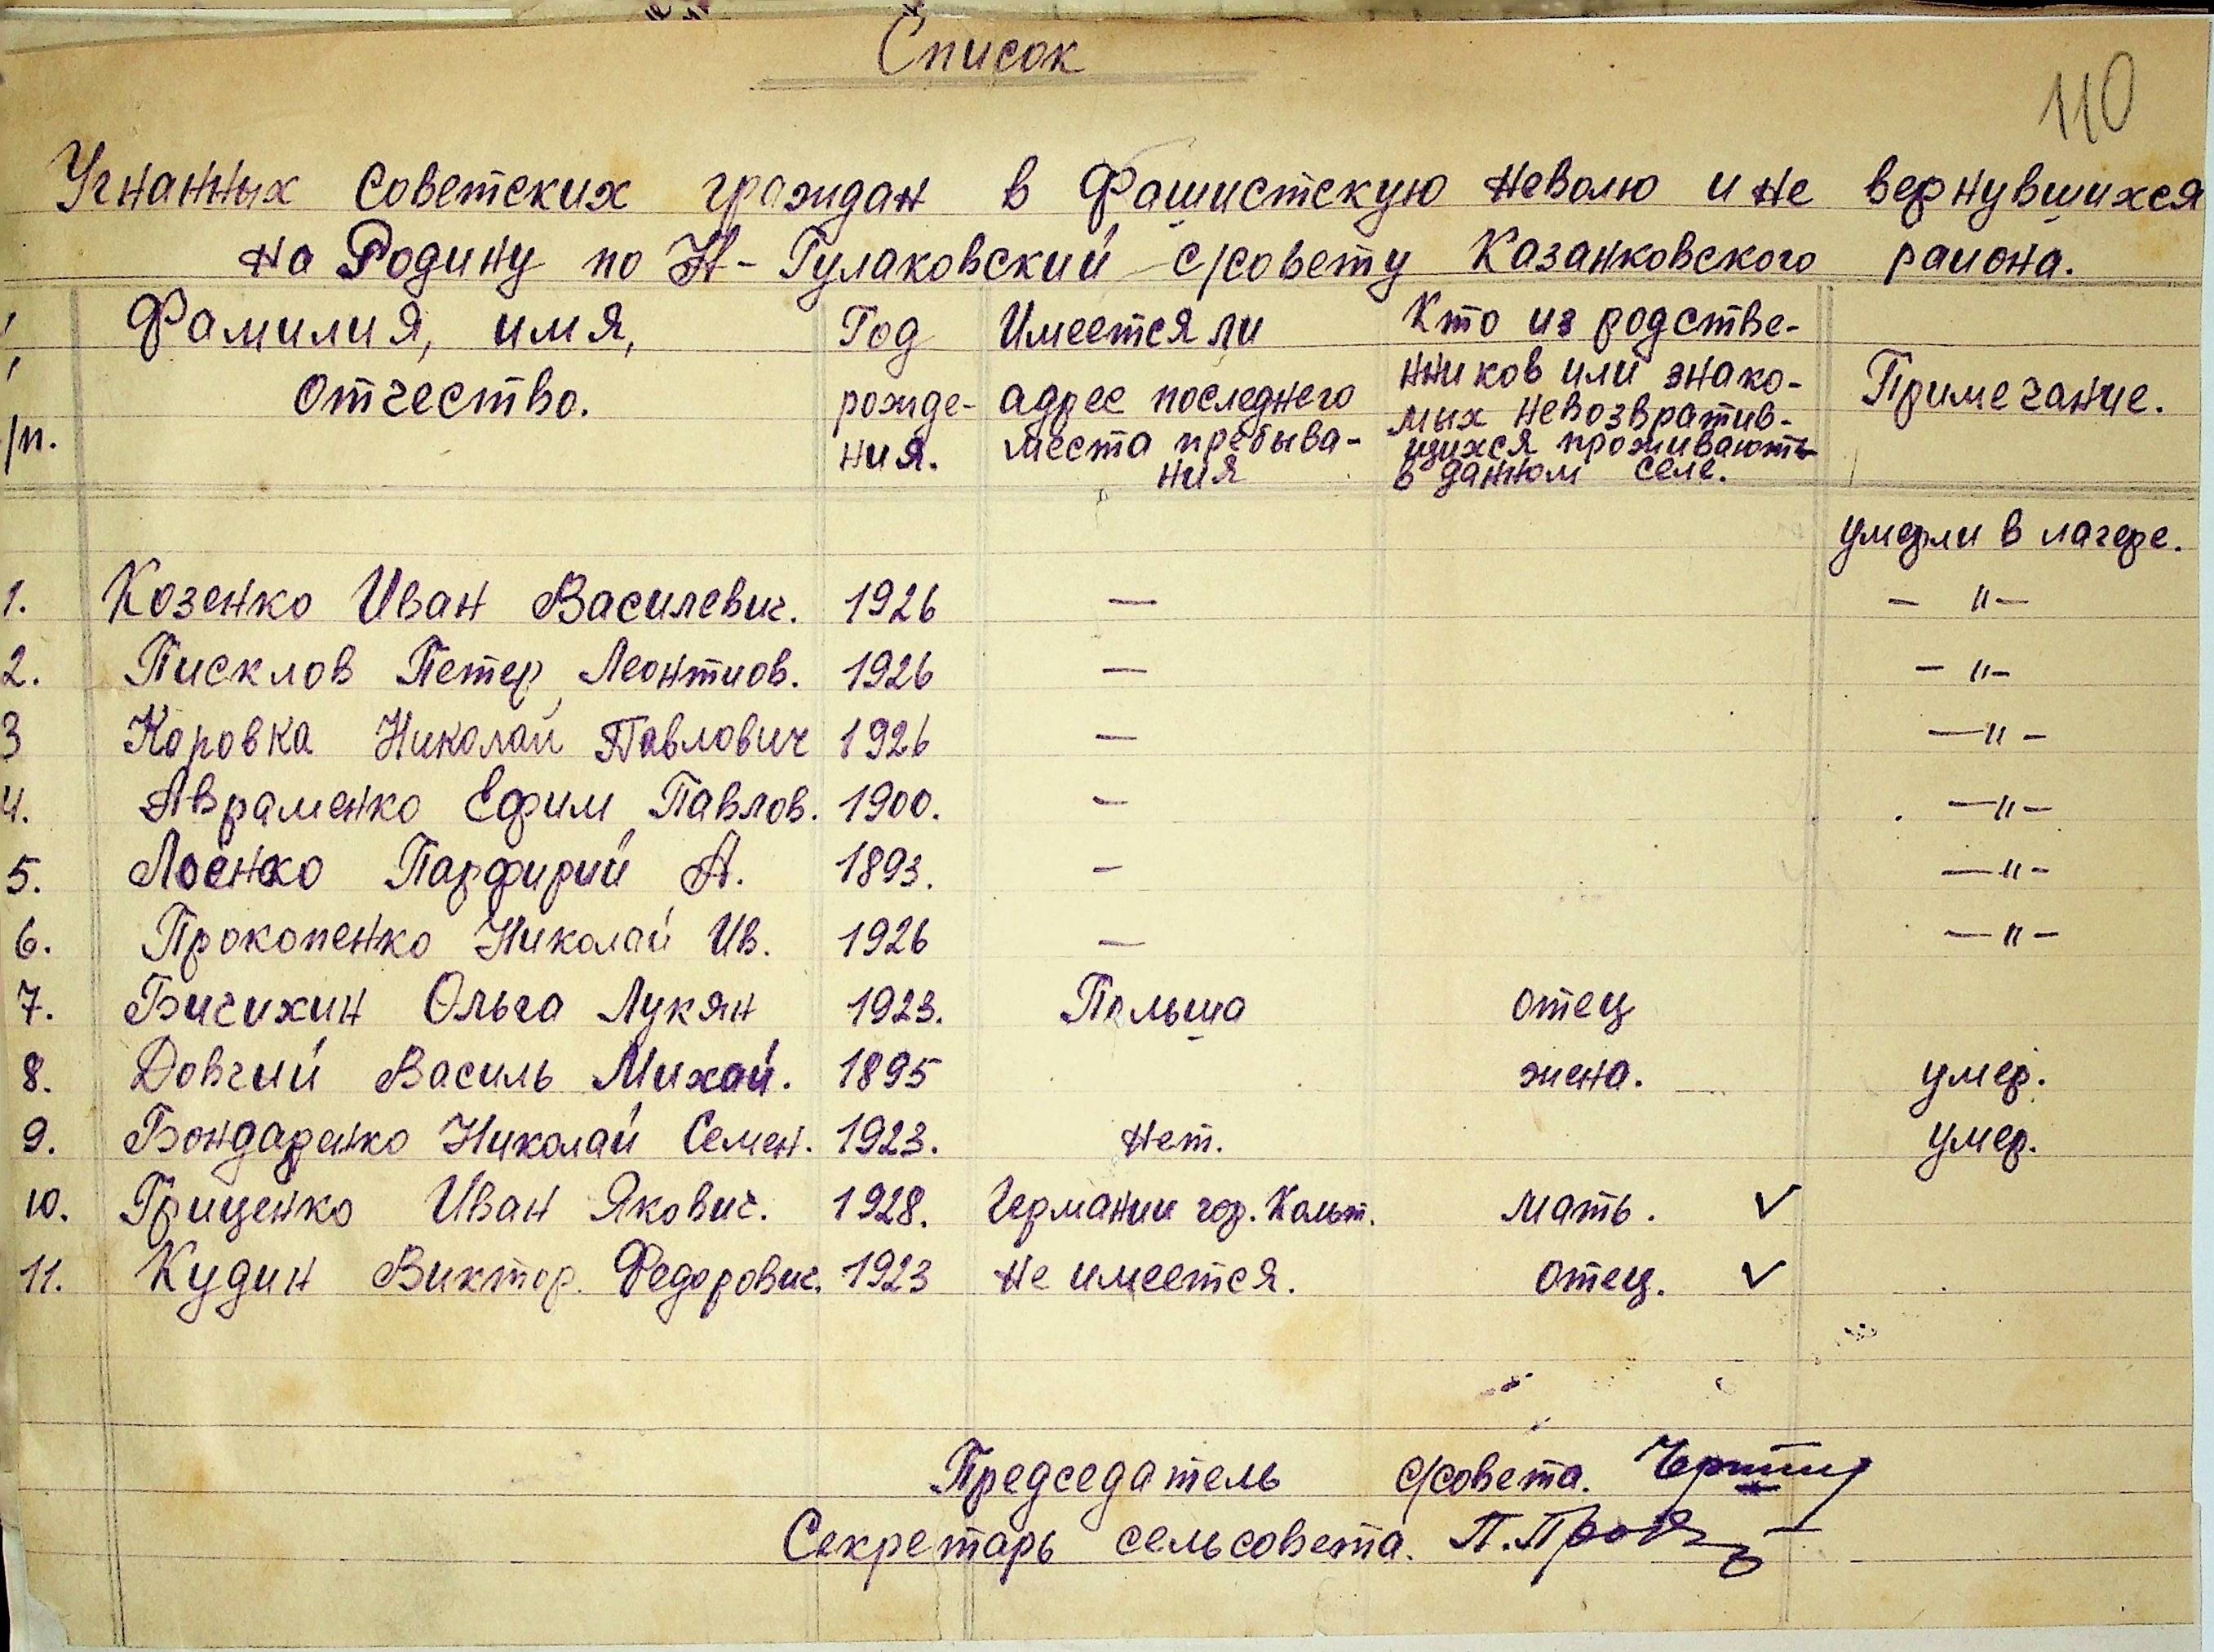 Список
110
Угнанных советских граждан в Фашистскую неволю и не вернувшихся
на Родину по Н-Гулаковский с/совету Казанковского района.
/п. Фамилия, имя, отчество. Год рожде-ния. Имеется ли адрес последнего места пребыва-ния Кто из родстве-нников или знако-мых невозвратив-шихся проживають в данном селе. Примечание.
умерли в лагере.
1. Козенко Иван Василевич. 1926 — – "–
2. Писклов Петер Леонтиов. 1926 — – "–
3 Коровка Николай Павлович 1926 — —"–
4. Авраменко Ефим Павлов. 1900. – —"–
5. Лоенко Парфирий А. 1893. – —"–
6. Прокопенко Николай Ив. 1926 — —"–
7. Бичихин Ольга Лукян 1923. Польша отец
8. Довгий Василь Михай. 1895 жена. умер.
9. Бондаренко Николай Семен. 1923. Нет. умер.
10. Гриценко Иван Якович. 1928. Германии гор. Кольт. мать. ✓
11. Кудин Виктор. Федорович. 1923 Не имеется. отец. ✓
Председатель с/совета.
Секретарь сельсовета. П.